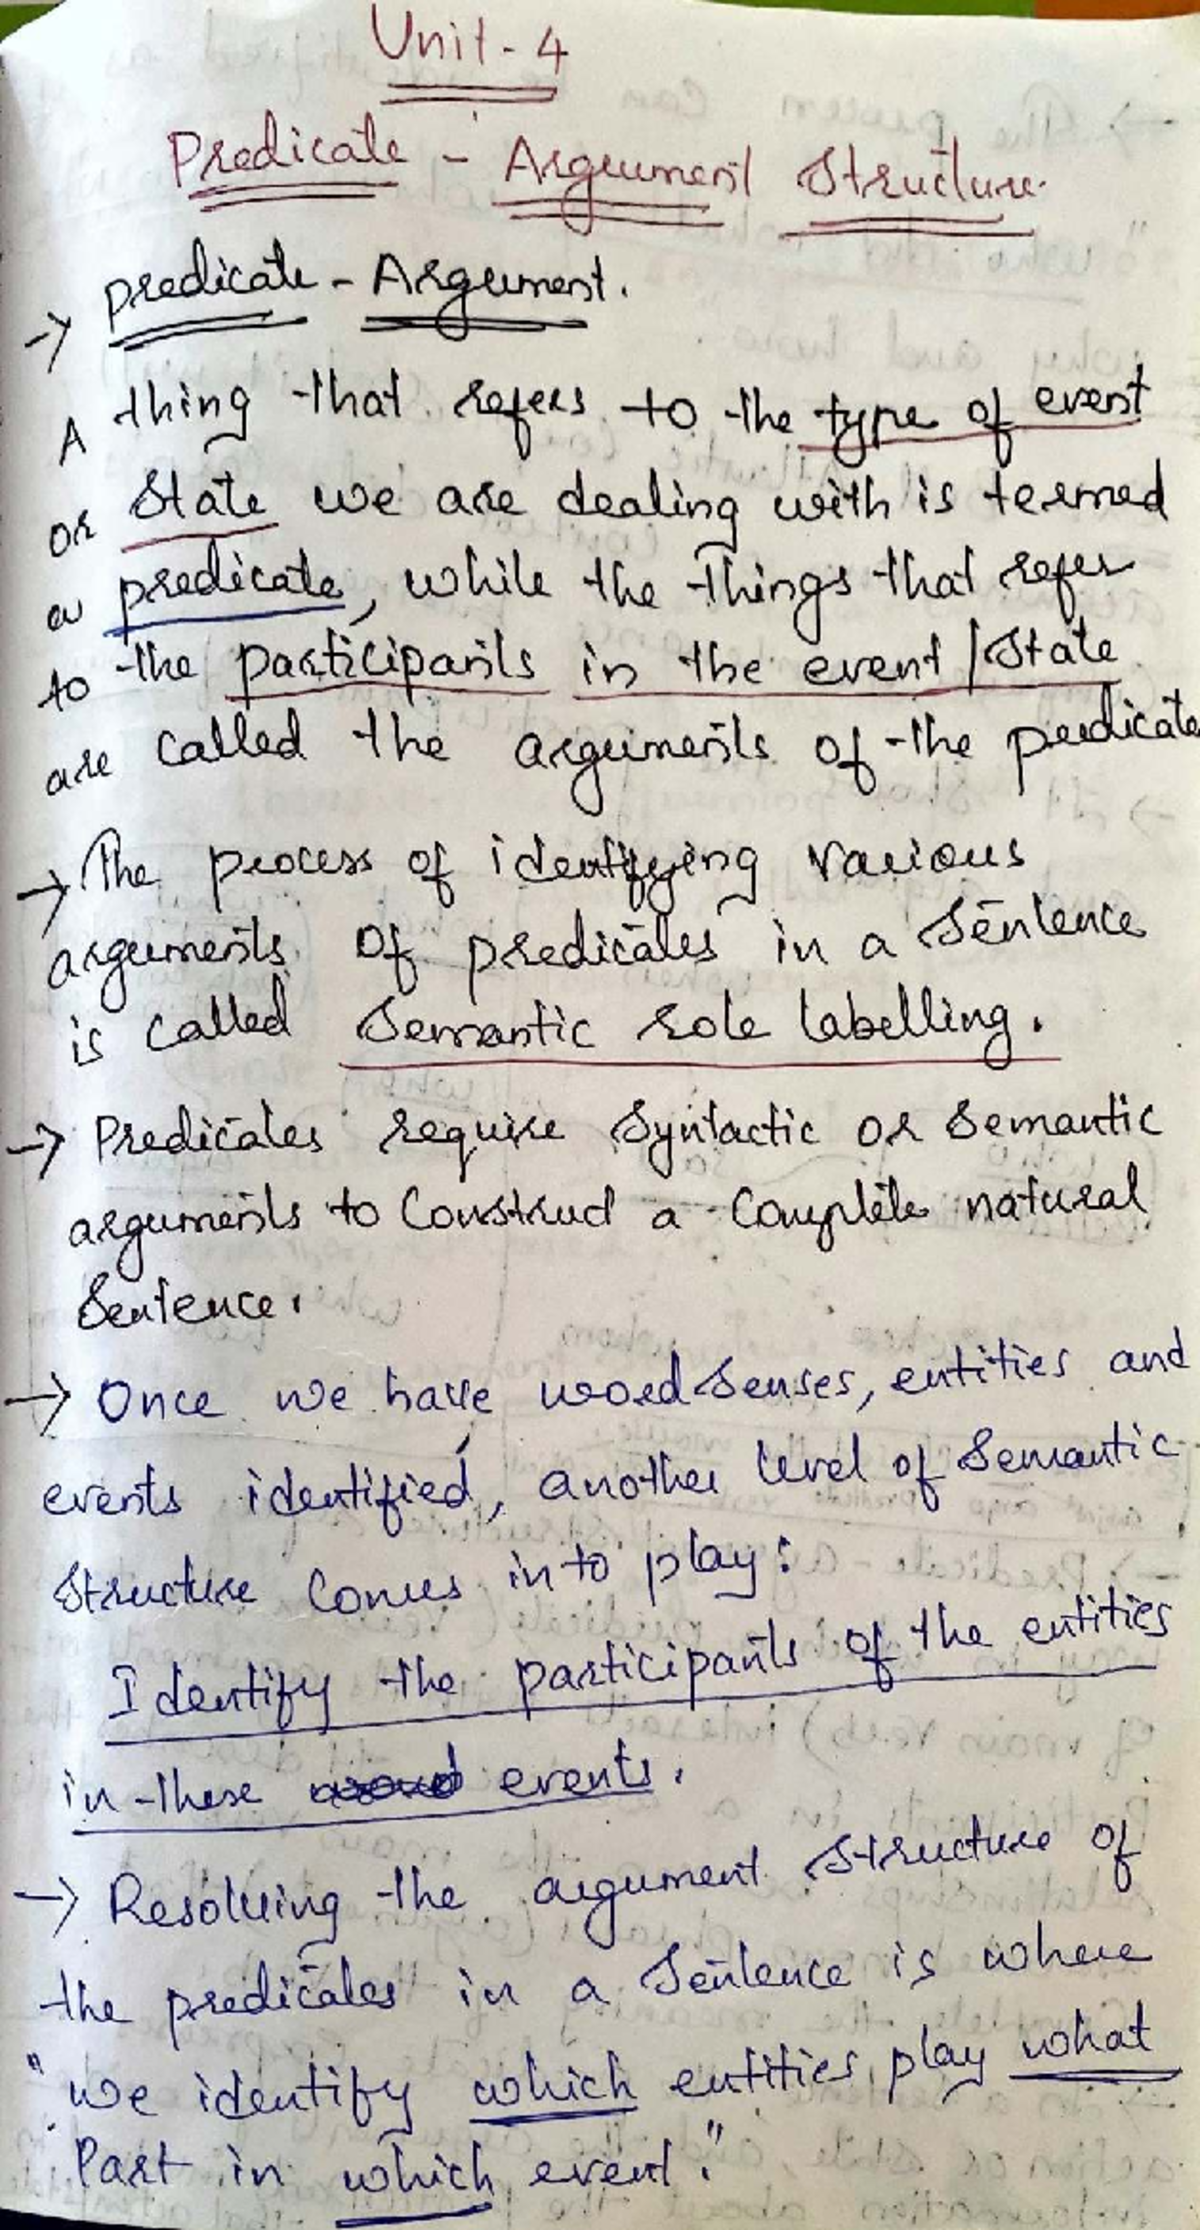 Unit - 4
Predicate - Argument Structure.
→ predicate - Argument.
A thing that refers to the type of event
or State we are dealing with is termed
a predicate, while the things that refer
to the participants in the event / State
are called the arguments of the predicate
→ The process of identifying various
arguments of predicates in a Sentence
is called Semantic role labelling.
→ Predicates require Syntactic or Semantic
arguments to Construct a Complete natural
Sentence.
→ Once we have word Senses, entities and
events identified, another level of Semantic
Structure Comes into play:
Identify the participants of the entities
in these events.
→ Resolving the argument Structure of
the predicates in a Sentence is where
"we identify which entities play what
Part in which event."